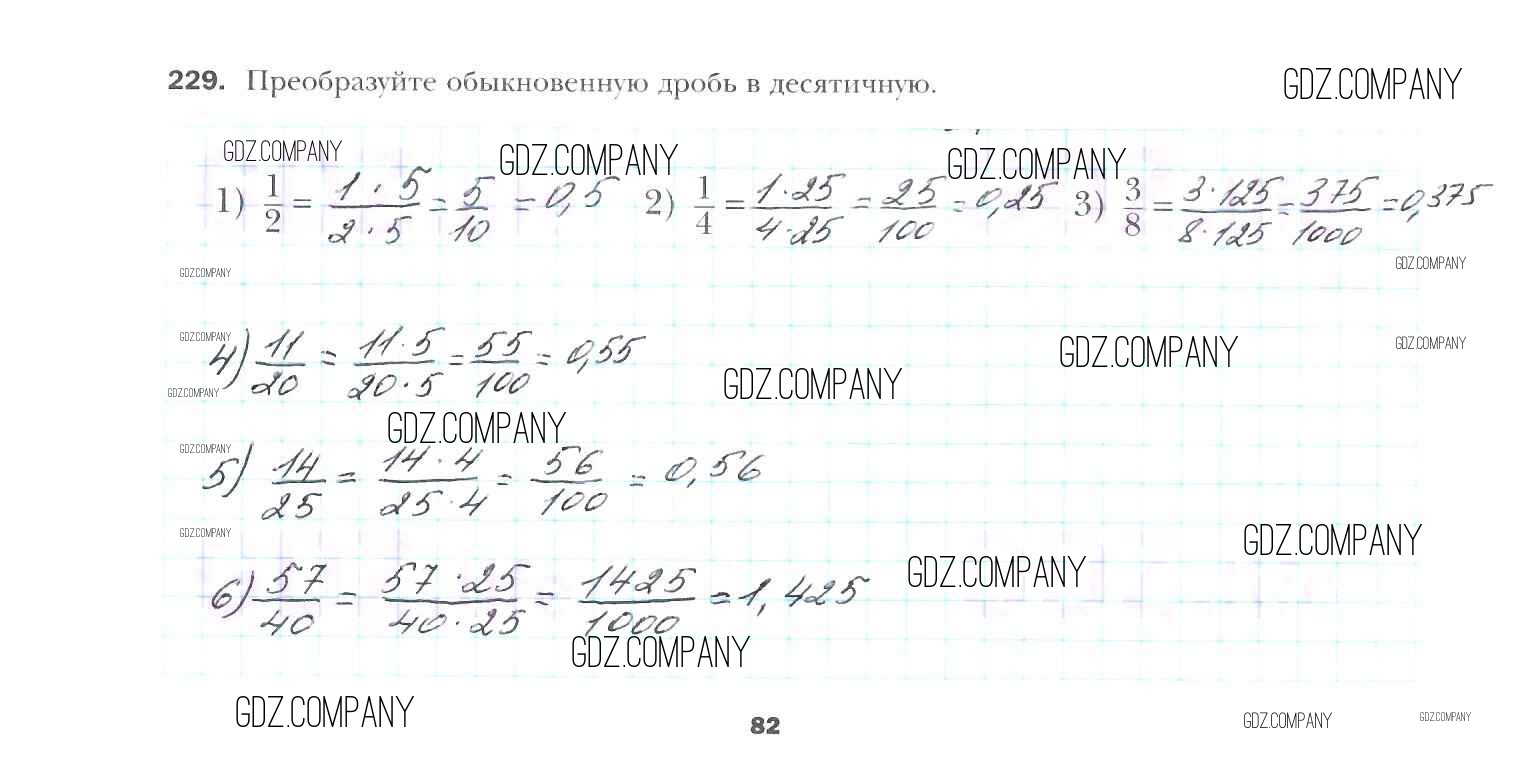 229. Преобразуйте обыкновенную дробь в десятичную.
GDZ.COMPANY
GDZ.COMPANY GDZ.COMPANY GDZ.COMPANY
1) 1/2 = 1·5/2·5 = 5/10 = 0,5 2) 1/4 = 1·25/4·25 = 25/100 = 0,25 3) 3/8 = 3·125/8·125 = 375/1000 = 0,375
GDZ.COMPANY GDZ.COMPANY
GDZ.COMPANY GDZ.COMPANY GDZ.COMPANY
4) 11/20 = 11·5/20·5 = 55/100 = 0,55
GDZ.COMPANY GDZ.COMPANY
GDZ.COMPANY
GDZ.COMPANY
5) 14/25 = 14·4/25·4 = 56/100 = 0,56
GDZ.COMPANY GDZ.COMPANY
GDZ.COMPANY
6) 57/40 = 57·25/40·25 = 1425/1000 = 1,425
GDZ.COMPANY
GDZ.COMPANY 82 GDZ.COMPANY GDZ.COMPANY